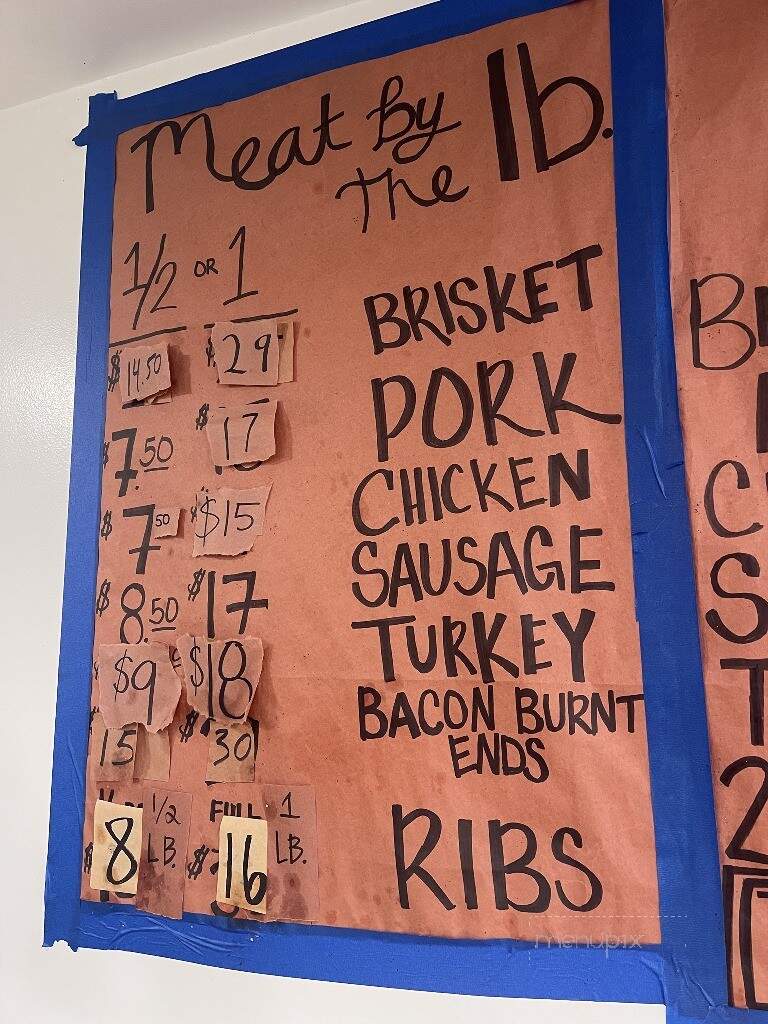 Meat by
the lb.
1/2 OR 1
$14.50 $29 BRISKET
$7.50 $17 PORK
$7.50 $15 CHICKEN
$8.50 $17 SAUSAGE
$9 $18 TURKEY
15 $30 BACON BURNT
ENDS
1/2 LB. FULL 1 LB.
$8 $16 RIBS
menupix